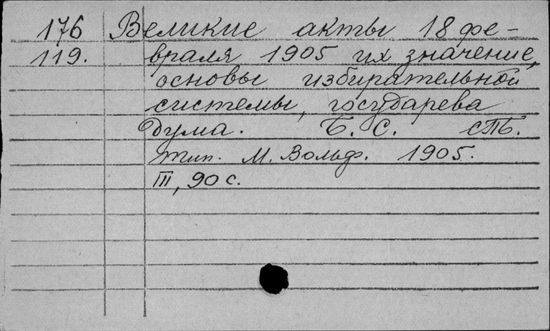 176 Великие акты 18 фе-
119. враля 1905 их значение,
основы избирательной
системы, государева
Дума. Б. С. СПб.
тип. М. Вольф. 1905.
III, 90 с.